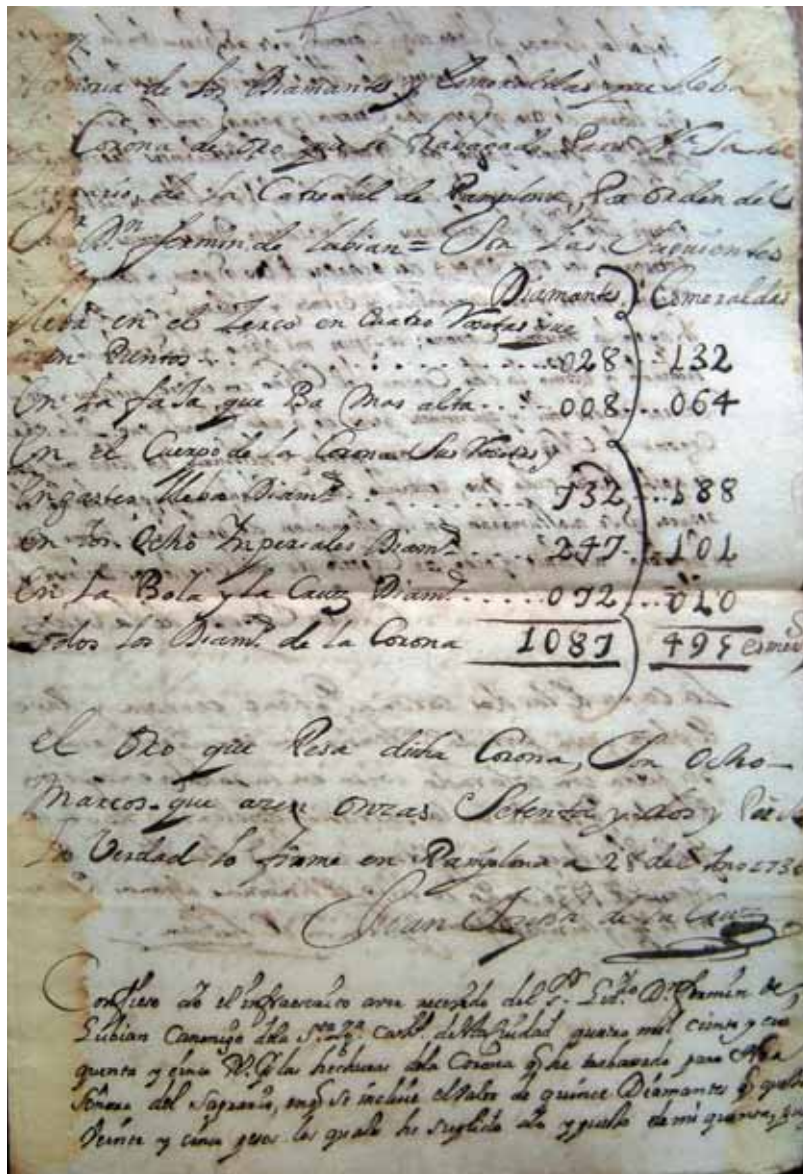 Memoria de los Diamantes y Esmeraldas que lleba
Corona de oro que se trabajado Para Nra Sa del
Sagrario, de la Catedral de Pamplona, Por orden del
Sr Dn fermin de Lubian = Son las Siguientes
Diamants Esmeraldas
lleba en el Zerco en Cuatro
en Puntos 028 132
En la faja que Ba mas alta 008 064
En el Cuerpo de la Corona Sus y
Engastes lleba Diamts 732 188
en los Ocho Ynperiales Diamts 247 101
En La Bola y la Cruz Diamts 072 010
todos los Diamts de la Corona 1087 495 esmers
el Oro que Pesa dicha Corona, Son Ocho
Marcos que acen Onzas Setenta y dos y
la Verdad lo firme en Pamplona a 28 del Ano 1736
Juan Joseph de la Cruz
Confieso io el infraescrito aver recevido del Sr Dn Fermin de
Lubian Canonigo dela Sta Cathl desta Ciudad quatro mil ciento y cin
quenta y cinco las hechuras dela Corona q he trabaxado para Nra
Señora del Sagrario, se incluie el valor de quince Diamantes q
Veinte y cinco pesos los quales he suplido io y puesto de mi quenta,